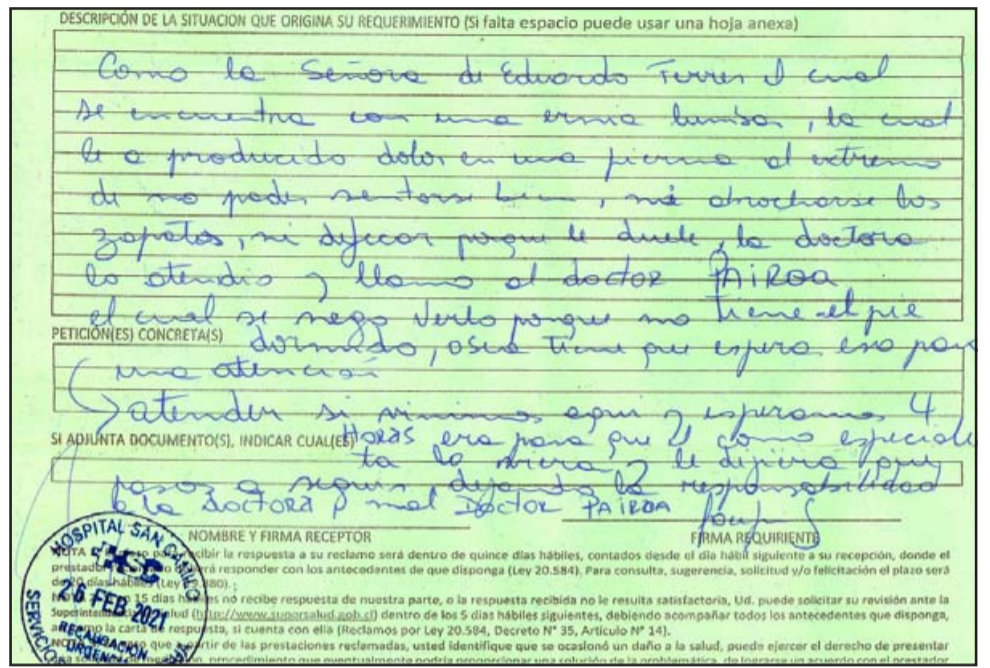 DESCRIPCIÓN DE LA SITUACION QUE ORIGINA SU REQUERIMIENTO (Si falta espacio puede usar una hoja anexa)
Como la Señora de Eduardo Ferrer el cual
se encuentra con una ernia lumbar, la cual
le a producido dolor en una pierna al extremo
de no poder sentarse bien, ni abrocharse los
zapatos, ni defecar porque le duele, la doctora
lo atendio y llamo al doctor PAIROA
el cual se nego verlo porque no tiene el pie
PETICIÓN(ES) CONCRETA(S)
dormido, osea tiene que espera eso para
una atención
atender si vinimos aqui y esperamos 4
SI ADJUNTA DOCUMENTO(S), INDICAR CUAL(ES)
Horas era para que el como especialis
ta lo viera y le dijera que
pasos a seguir, dejando la responsabilidad
a la doctora mal Doctor PAIROA
NOMBRE Y FIRMA RECEPTOR
FIRMA REQUIRIENTE
NOTA El para recibir la respuesta a su reclamo será dentro de quince días hábiles, contados desde el día hábil siguiente a su recepción, donde el
prestador deberá responder con los antecedentes de que disponga (Ley 20.584). Para consulta, sugerencia, solicitud y/o felicitación el plazo será
de 20 días hábiles (Ley
15 días no recibe respuesta de nuestra parte, o la respuesta recibida no le resulta satisfactoria, Ud. puede solicitar su revisión ante la
Superintendencia Salud (http://www.supersalud.gob.cl) dentro de los 5 días hábiles siguientes, debiendo acompañar todos los antecedentes que disponga,
como la carta de respuesta, si cuenta con ella (Reclamos por Ley 20.584, Decreto N° 35, Artículo N° 14).
NOTA que a partir de las prestaciones reclamadas, usted identifique que se ocasionó un daño a la salud, puede ejercer el derecho de presentar
procedimiento que eventualmente podría proporcionar una solución de la problemática, de lograrse un acuerdo con el prestador
HOSPITAL SAN CAMILO
26 FEB 2021
RECAUDACION
URGENCIA
SERVICIO